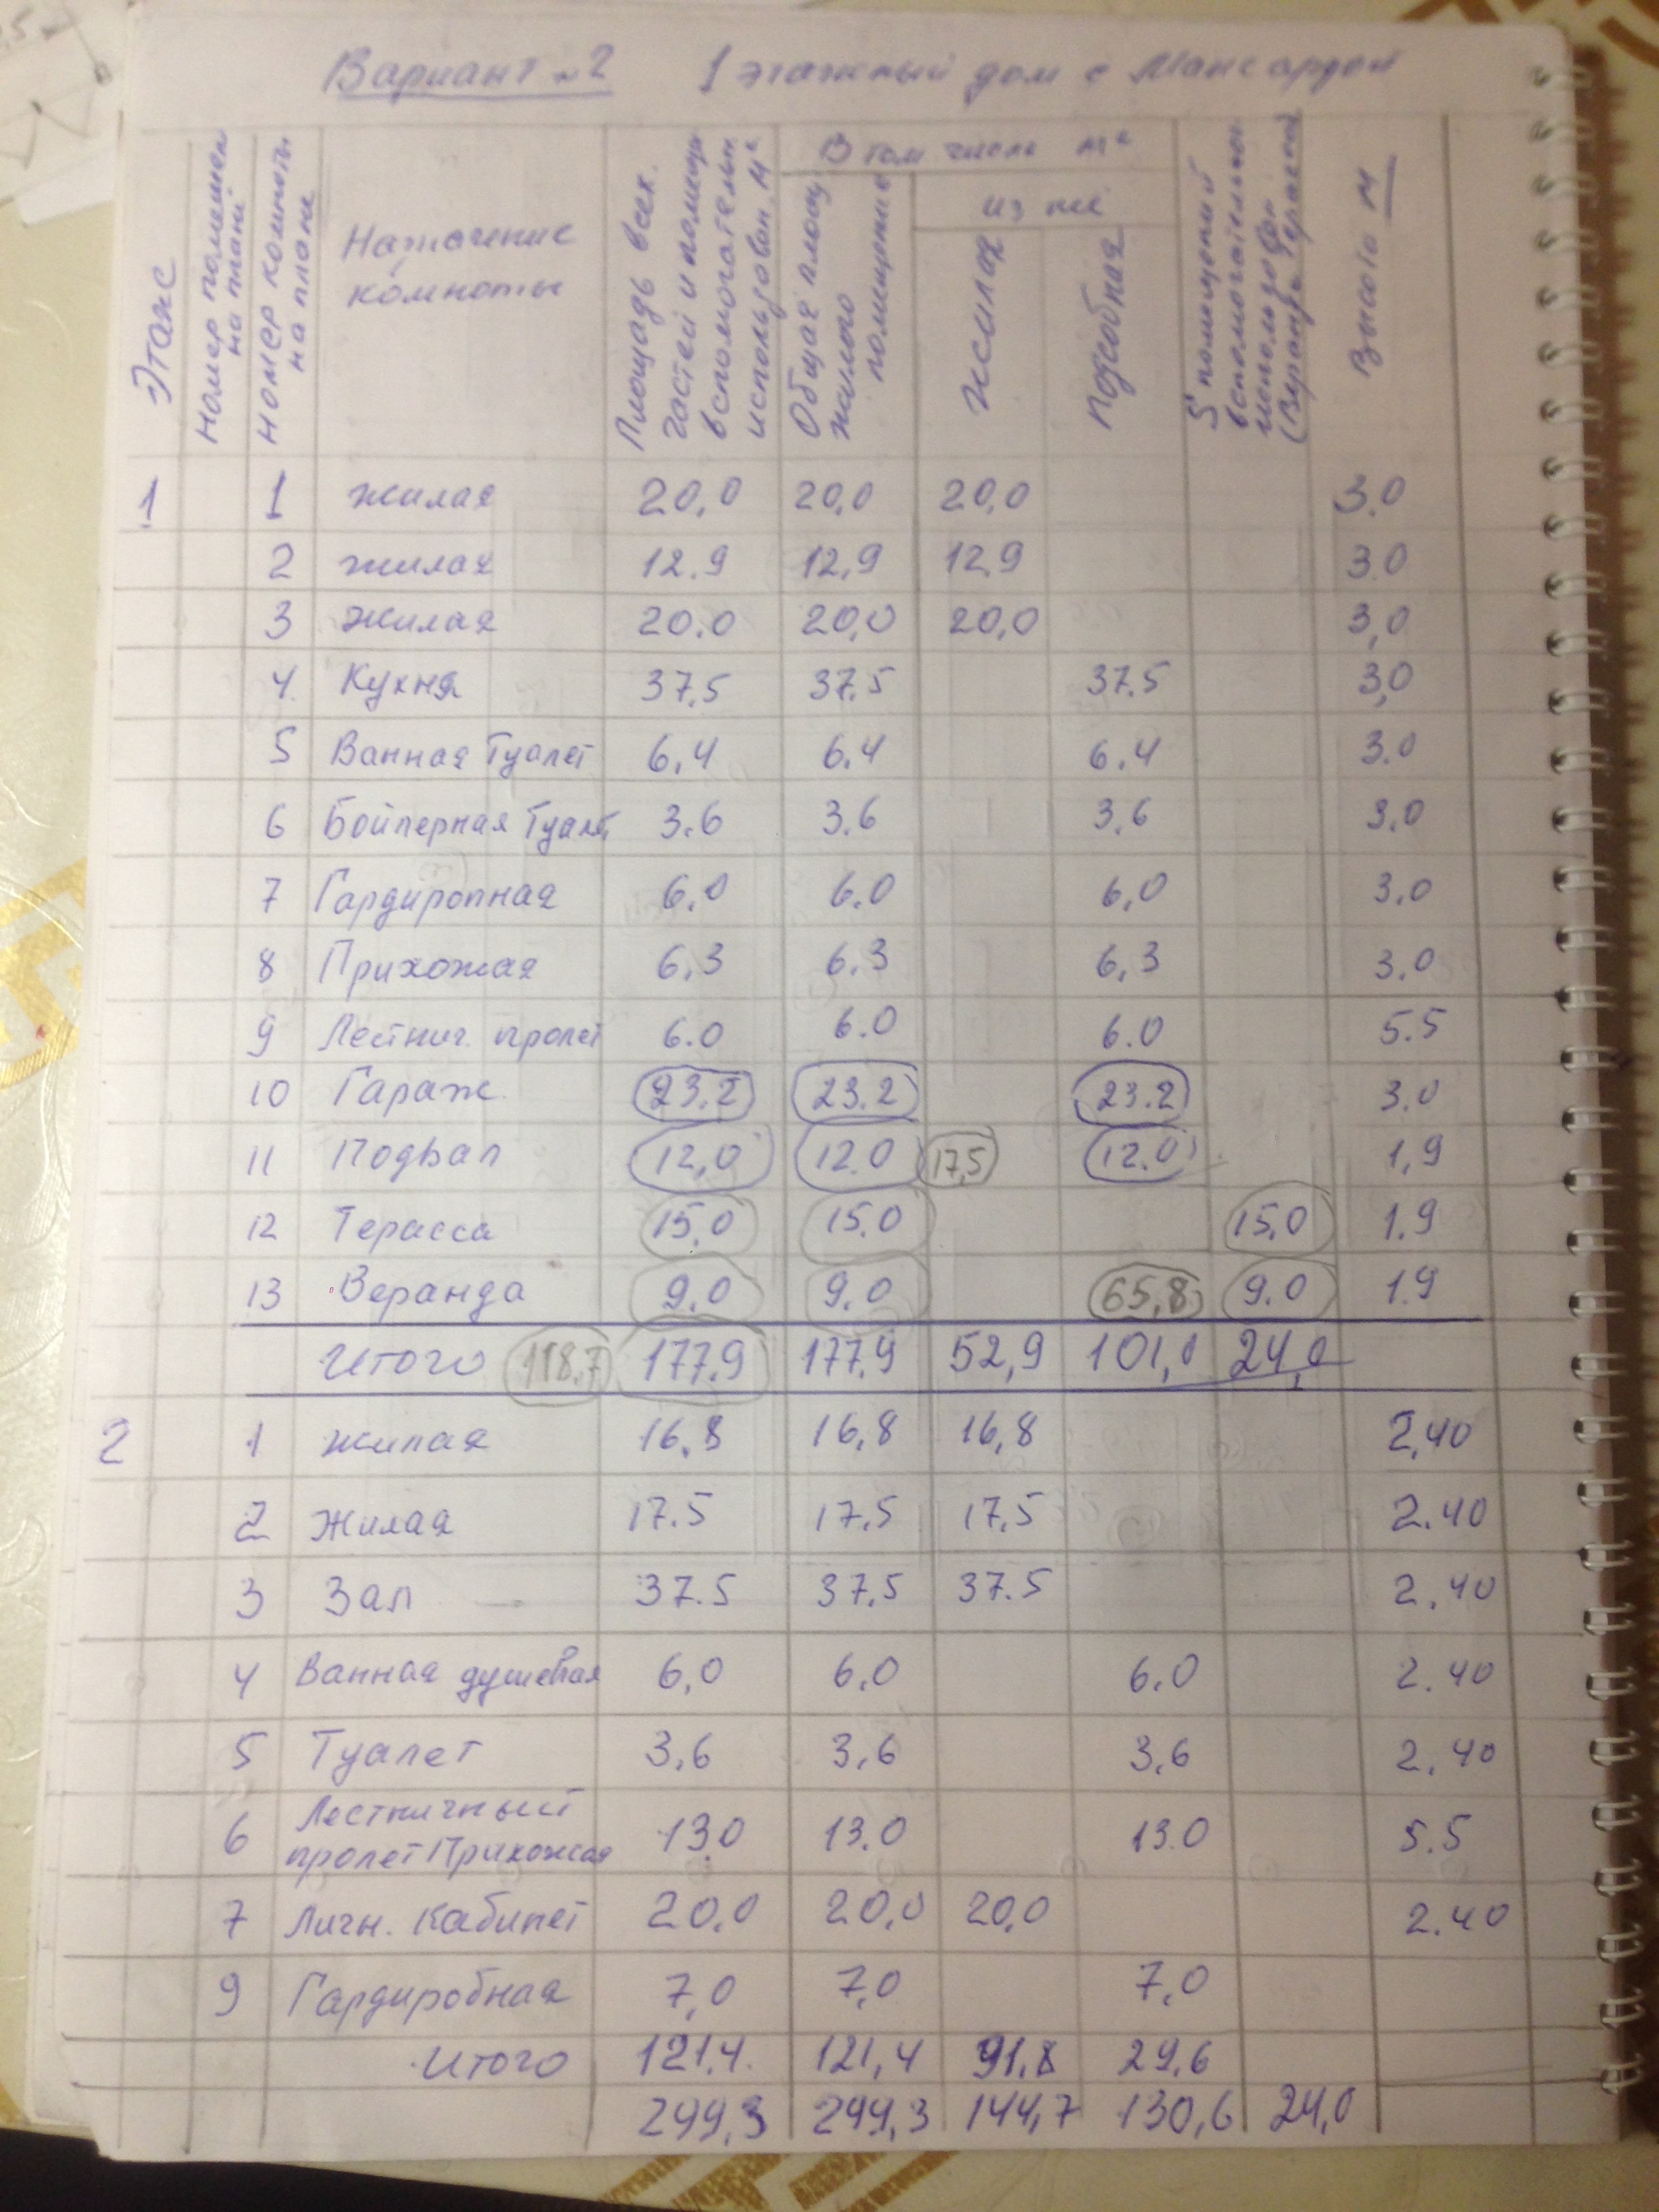 Вариант №2 1 этажный дом с Мансардой
Этаж
Номер помещен на плане
номер комнаты на плане
Назначение комноты
Площадь всех частей и помещ вспомогательн использован. м²
В том числе м²
Общая площ жилого помещения
из них
Жилая
Подсобная
S помещений вспомогательного (Веранда Терасса)
Высота м
1 1 жилая 20,0 20,0 20,0 3.0
2 жилая 12.9 12,9 12.9 3.0
3 Жилая 20.0 20,0 20,0 3,0
4. Кухня 37,5 37.5 37.5 3,0
5 Ванная Туалет 6,4 6.4 6.4 3.0
6 Бойлерная Туалет 3.6 3.6 3,6 3,0
7 Гардиропная 6.0 6.0 6,0 3,0
8 Прихожая 6,3 6.3 6,3 3.0
9 Лестнич. пролет 6.0 6.0 6.0 5.5
10 Гараж 23.2 23.2 23.2 3.0
11 Подвал 12,0 12.0 17,5 12.0 1,9
12 Терасса 15,0 15,0 15,0 1.9
13 Веранда 9,0 9,0 65,8 9.0 1.9
Итого 118.7 177.9 177,9 52,9 101,0 24,0
2 1 жилая 16,8 16,8 16,8 2,40
2 Жилая 17.5 17,5 17,5 2.40
3 Зал 37.5 37,5 37.5 2.40
4 Ванная душевая 6,0 6.0 6.0 2.40
5 Туалет 3,6 3,6 3,6 2.40
6 Лестничный
пролет Прихожая 13.0 13.0 13.0 5.5
7 Личн. Кабинет 20,0 20,0 20,0 2.40
9 Гардиробная 7,0 7,0 7,0
Итого 121.4. 121,4 91.8 29.6
299,3 299,3 144,7 130,6 24,0